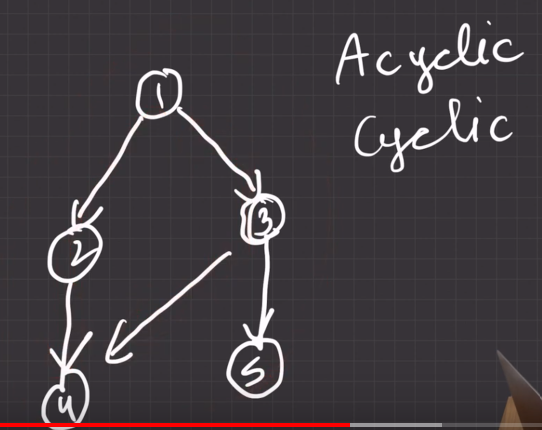 Acyclic
Cyclic
1
2
3
4
5